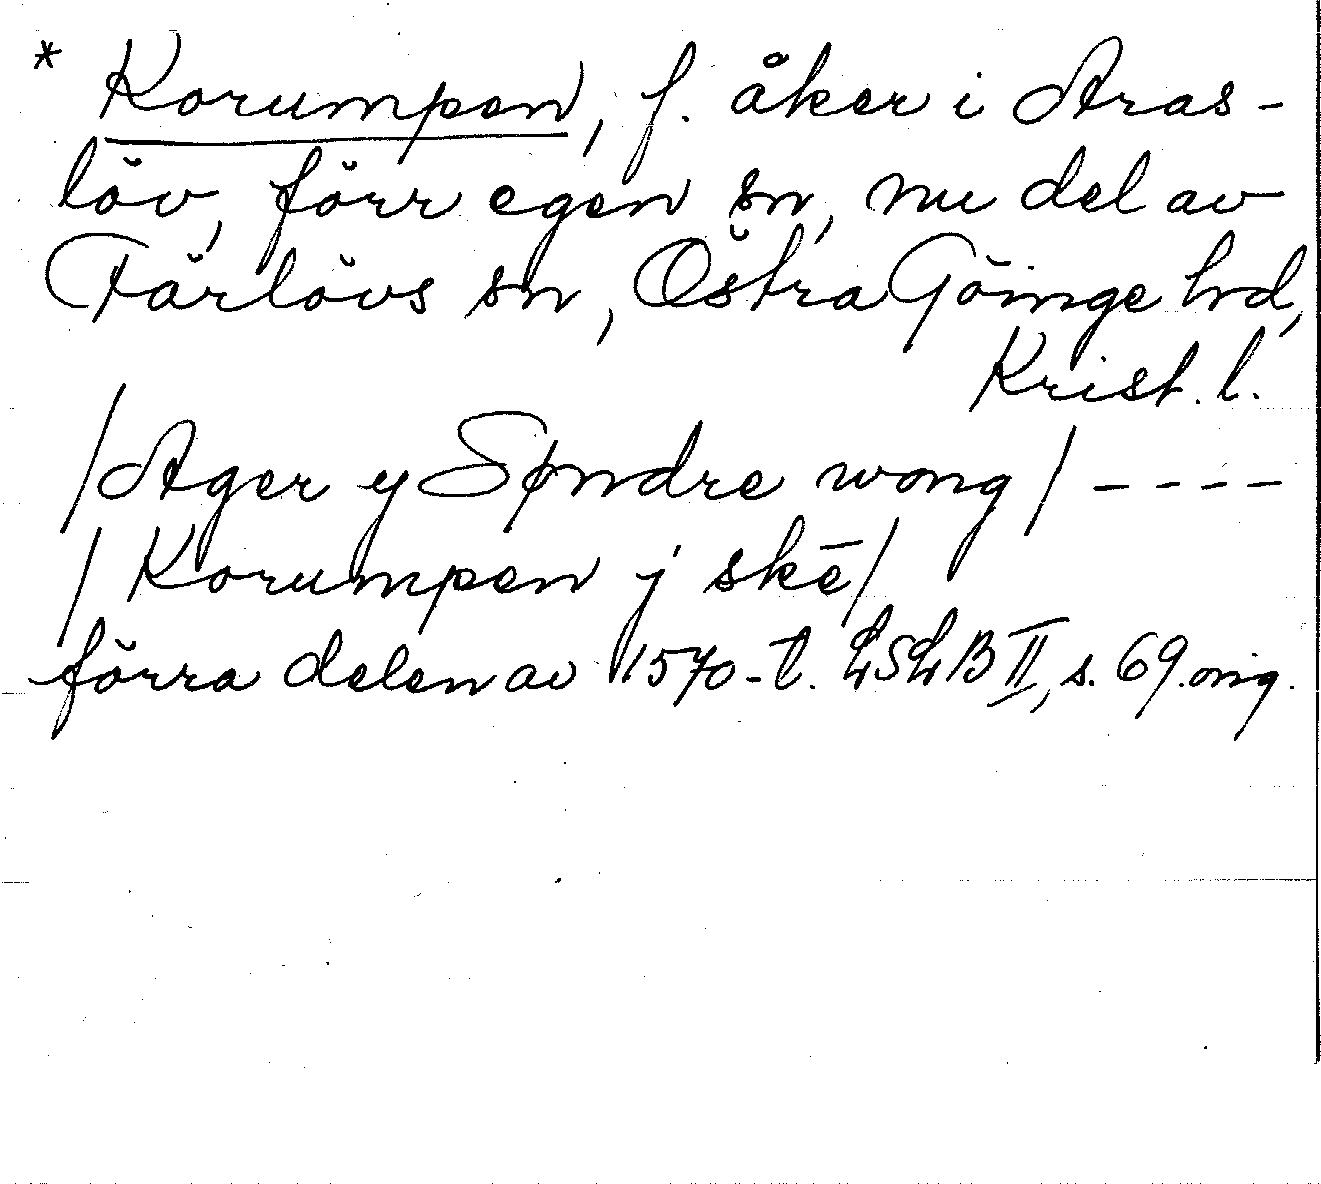 * Korumpen, f. åker i Aras-
löv, förr egen sn, nu del av
Färlövs sn, Östra Göinge hrd,
Krist. l.
/Ager y Søndre wong/ ----
/ Korumpen j skē/
förra delen av 1570-t. LSLB II, s. 69. orig.